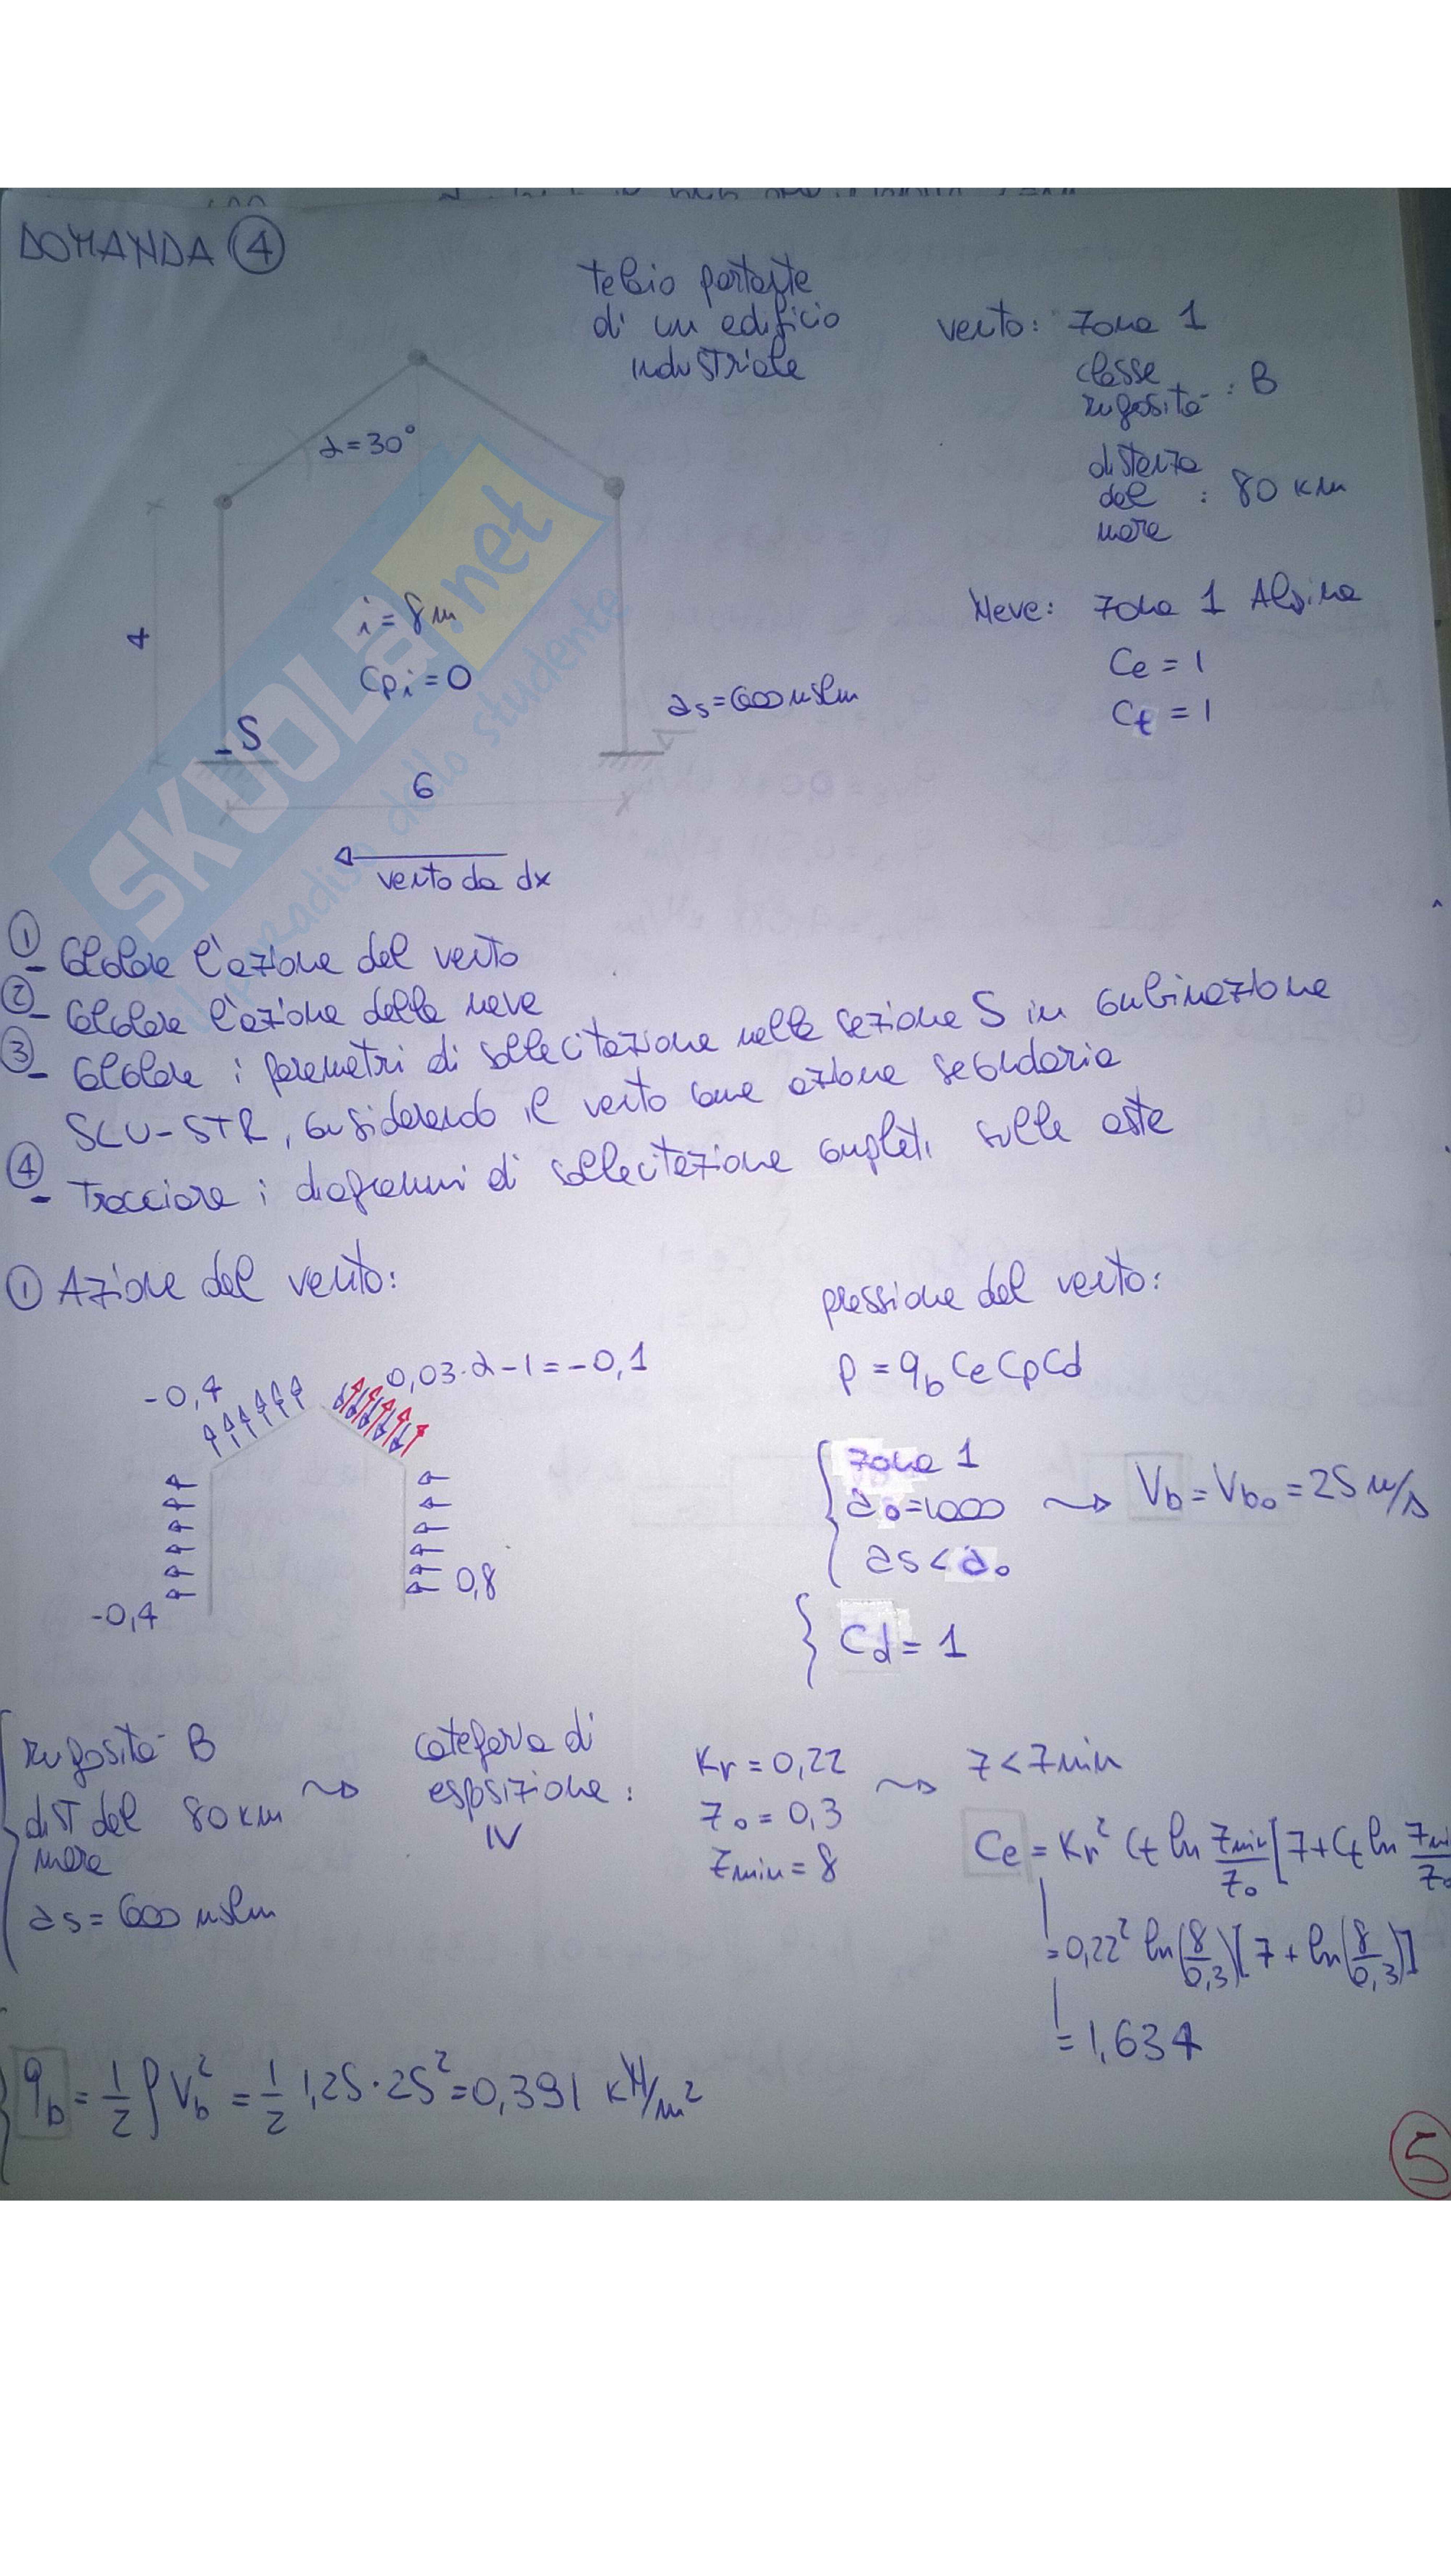 DOMANDA 4
telaio portante
di un edificio
industriale
vento: zona 1
classe
rugosità : B
distanza
dal : 80 km
mare
Neve: zona 1 Alpina
Ce = 1
Ct = 1
α=30°
4
i = 8 m
Cpi = 0
as=600 mslm
S
6
vento da dx
SKUOLA.net
il paradiso dello studente
1 - Calcolare l'azione del vento
2 - Calcolare l'azione della neve
3 - Calcolare i parametri di sollecitazione nella sezione S in combinazione
SLU-STR, considerando il vento come azione secondaria
4 - Tracciare i diagrammi di sollecitazione completi sulle aste
1 Azione del vento:
pressione del vento:
-0,4
0,03·α-1=-0,1
p = qb Ce Cp Cd
zona 1
a0=1000
as < a0
Vb = Vb0 = 25 m/s
0,8
-0,4
Cd = 1
rugosità B
dist dal 80 km
mare
as = 600 mslm
categoria di
esposizione :
IV
Kr = 0,22
z0 = 0,3
zmin = 8
z < zmin
Ce = Kr² Ct ln zmin/z0 [7+Ct ln
= 0,22² ln(8/0,3)[7 + ln(8/0,3)]
= 1,634
qb = 1/2 ρ Vb² = 1/2 1,25·25² = 0,391 kN/m²
5